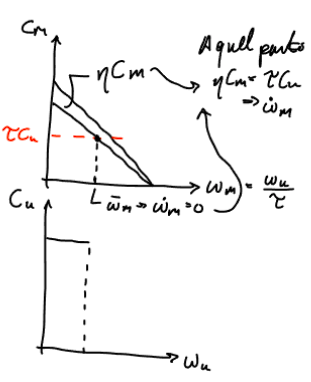 Cₘ
ηCₘ
Aquel punto
ηCₘ = τCᵤ
⇒ ω̇ₘ
τCᵤ
L ω̄ₘ ⇒ ω̇ₘ = 0
ωₘ = ωᵤ/τ
Cᵤ
ωᵤ